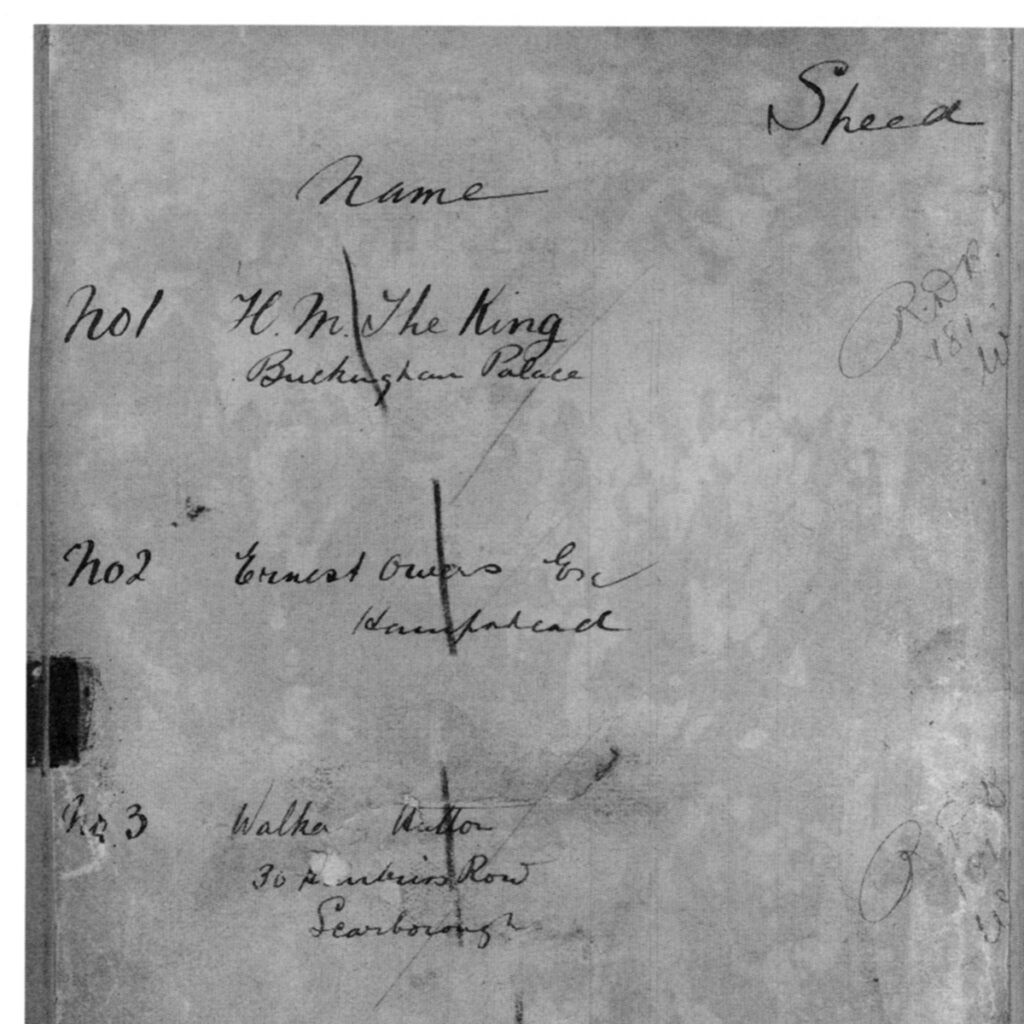 Speed
Name
No1 H. M. The King
Buckingham Palace
No2 Ernest Owers Esq
Hampstead
No. 3 Walker Hutton
30 Row
Scarborough